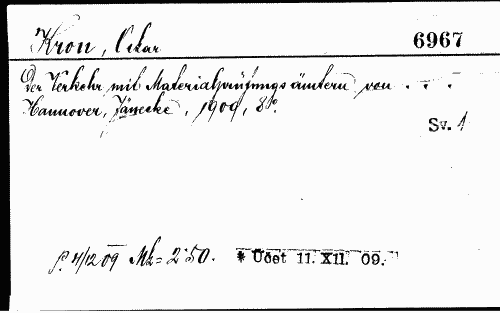 Kron, Oskar 6967
Der Verkehr mit Materialprüfungsämtern von . . .
Hannover, Jänecke, 1909, 8°.
Sv. 1
4/12 09 Mk = 2·50. * Účet 11. XII. 09.